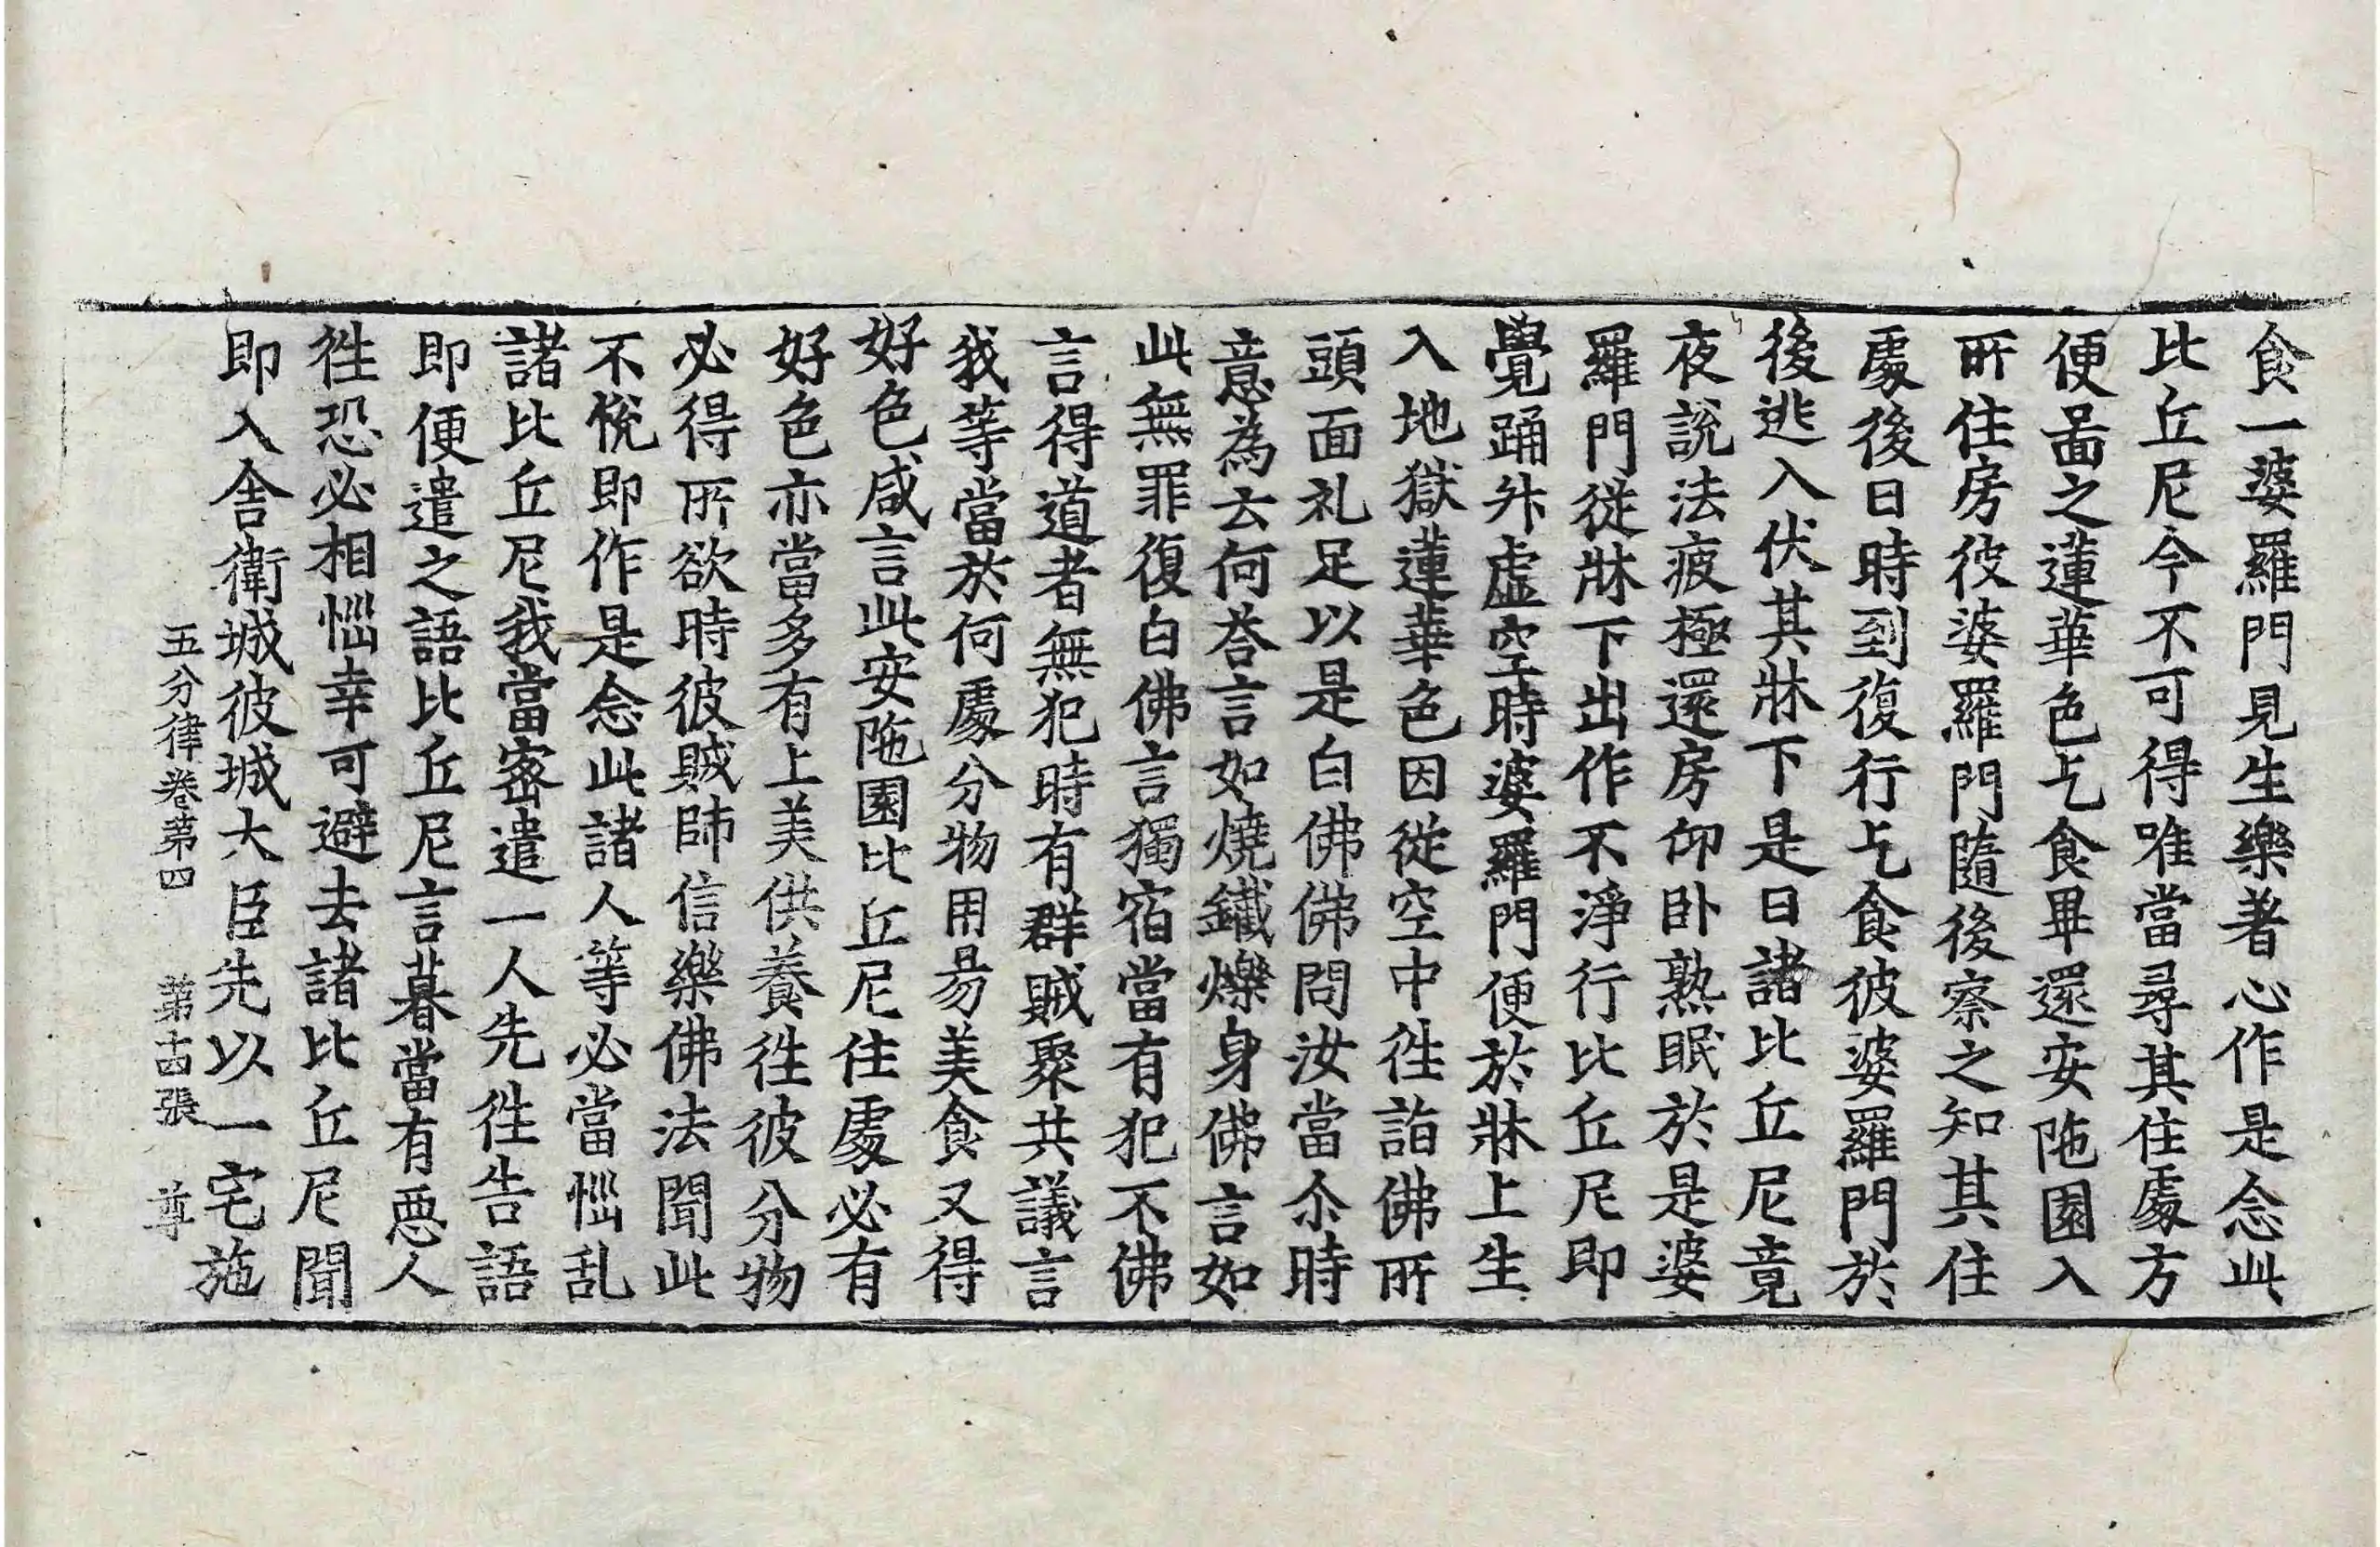 食一婆羅門見生樂著心作是念此
比丘尼今不可得唯當尋其住處方
便啚之蓮華色乞食畢還安陁園入
所住房彼婆羅門隨後察之知其住
處後日時到復行乞食彼婆羅門於
後逃入伏其牀下是日諸比丘尼竟
夜說法疲極還房仰卧熟眠於是婆
羅門從牀下出作不淨行比丘尼即
覺踊升虛空時婆羅門便於牀上生
入地獄蓮華色因從空中徃詣佛所
頭面礼足以是白佛佛問汝當尒時
意為云何荅言如燒鐵爍身佛言如
此無罪復白佛言獨宿當有犯不佛
言得道者無犯時有群賊聚共議言
我等當於何處分物用昜美食又得
好色咸言此安陁園比丘尼住處必有
好色亦當多有上美供養徃彼分物
必得所欲時彼賊師信樂佛法聞此
不悅即作是念此諸人等必當惱乱
諸比丘尼我當密遣一人先徃告語
即便遣之語比丘尼言暮當有惡人
徃恐必相惱幸可避去諸比丘尼聞
即入舍衛城彼城大臣先以一宅施
五分律卷第四 第十四張 尊